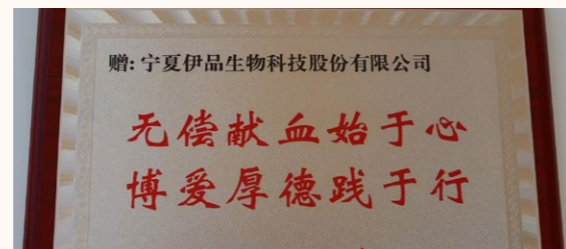 赠: 宁夏伊品生物科技股份有限公司
无偿献血始于心
博爱厚德践于行